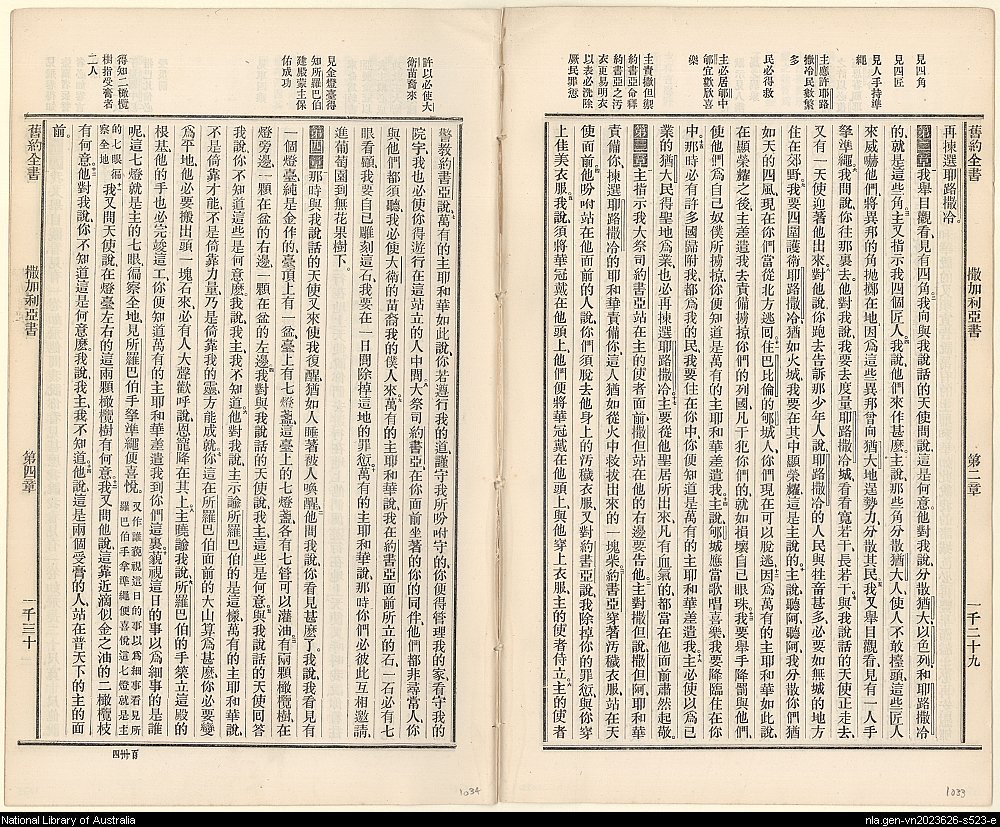 舊約全書
撒加利亞書
第二章
一千二十九
見四角
見四匠
見人手持準
繩
主應許耶路
撒冷民數繁
多
民必得救
主必居郇中
郇宜歡欣喜
樂
主責撒但卻
約書亞命釋
約書亞之汚
衣更易明衣
以表必洗除
厥民罪愆
再揀選耶路撒冷
第二章我舉目觀看見有四角我向與我說話的天使問說這是何意他對我說分散猶大以色列和耶路撒冷
的就是這些角主又指示我四個匠人我說他們來作甚麽主說那些角分散猶大人使人不敢擡頭這些匠人
來威嚇他們將異邦的角拋擲在地因爲這些異邦曾向猶大地逞勢力分散其民我又舉目觀看見有一人手
拏準繩我問說你往那裏去他對我說我要去度量耶路撒冷城看看寬若干長若干與我說話的天使正走去
又有一天使迎著他出來對他說你跑去告訴那少年人說耶路撒冷的人民與牲畜甚多必要如無城的地方
住在郊野我要四圍護衛耶路撒冷猶如火城我要在其中顯榮耀這是主說的主說聽阿聽阿我分散你們猶
如天的四風現在你們當從北方逃囘住巴比倫的郇城人你們現在可以脫逃因爲萬有的主耶和華如此說
在顯榮耀之後主差遣我去責備擄掠你們的列國凡干犯你們的就如損壞自己眼珠我要舉手降罰與他們
使他們爲自己奴僕所擄掠你便知道是萬有的主耶和華差遣我主說郇城應當歌唱喜樂我要降臨住在你
中那時必有許多國歸附我都爲我的民我要住在你中你便知道是萬有的主耶和華差遣我主必使以爲已
業的猶大民得聖地爲業也必再揀選耶路撒冷主要從他聖居所出來凡有血氣的都當在他面前肅然起敬
第三章主指示我大祭司約書亞站在主的使者面前撒但站在他的右邊要告他主對撒但說撒但阿耶和華
責備你揀選耶路撒冷的耶和華責備你這人猶如從火中救拔出來的一塊柴約書亞穿著汚穢衣服站在天
使面前他吩咐站在他面前的人說你們須脫去他身上的汚穢衣服又對約書亞說我除掉你的罪愆與你穿
上佳美衣服我說須將華冠戴在他頭上他們便將華冠戴在他頭上與他穿上衣服主的使者侍立主的使者
1033
許以必使大
衛苗裔來
見金燈臺得
知所羅巴伯
建殿蒙主保
佑成功
得知二橄欖
樹指受膏者
二人
警教約書亞說萬有的主耶和華如此說你若遵行我的道謹守我所吩咐守的你便得管理我的家看守我的
院宇我也必使你得游行在這站立的人中間大祭司約書亞在你面前坐著的你的同伴他們都非尋常人你
與他們都須聽我必使大衛的苗裔我的僕人來萬有的主耶和華說我在約書亞面前所立的石一石必有七
眼看顧我要自已雕刻這石我要在一日間除掉這地的罪愆萬有的主耶和華說那時你們必彼此互相邀請
進葡萄園到無花果樹下
第四章那時與我說話的天使又來使我復醒猶如人睡著被人喚醒他問我說你看見甚麽了我說我看見有
一個燈臺純是金作的臺頂上有一盆臺上有七燈盞這臺上的七燈盞各有七管可以灌油有兩顆橄欖樹在
燈旁邊一顆在盆的右邊一顆在盆的左邊我對與我說話的天使說我主這些是何意與我說話的天使囘答
我說你不知道這些是何意麽我說我主我不知道他對我說主示諭所羅巴伯的是這樣萬有的主耶和華說
不是倚靠才能不是倚靠力量乃是倚靠我的靈方能成就你這在所羅巴伯面前的大山算爲甚麽你必要變
爲平地他必要搬出頭一塊石來必有人大聲歡呼說恩寵降在其上主曉諭我說所羅巴伯的手築立這殿的
根基他的手也必完竣這工你便知道萬有的主耶和華差遣我到你們這裏藐視這日的事以爲細事的是誰
呢這七燈就是主的七眼徧察全地見所羅巴伯手拏準繩便喜悅又作誰藐視這日的事以爲細事看見所羅巴伯手拿準繩便喜悅這七燈就是主
的七眼徧察全地我又問天使說在燈臺左右的這兩顆橄欖樹有何意我又問他說這靠近滴似金之油的二橄欖枝
有何意他對我說你不知道這是何意麽我說我主我不知道他說這是兩個受膏的人站在普天下的主的面
前
舊約全書
撒加利亞書
第四章
一千三十
百卅四
1034
National Library of Australia
nla.gen-vn2023626-s523-e